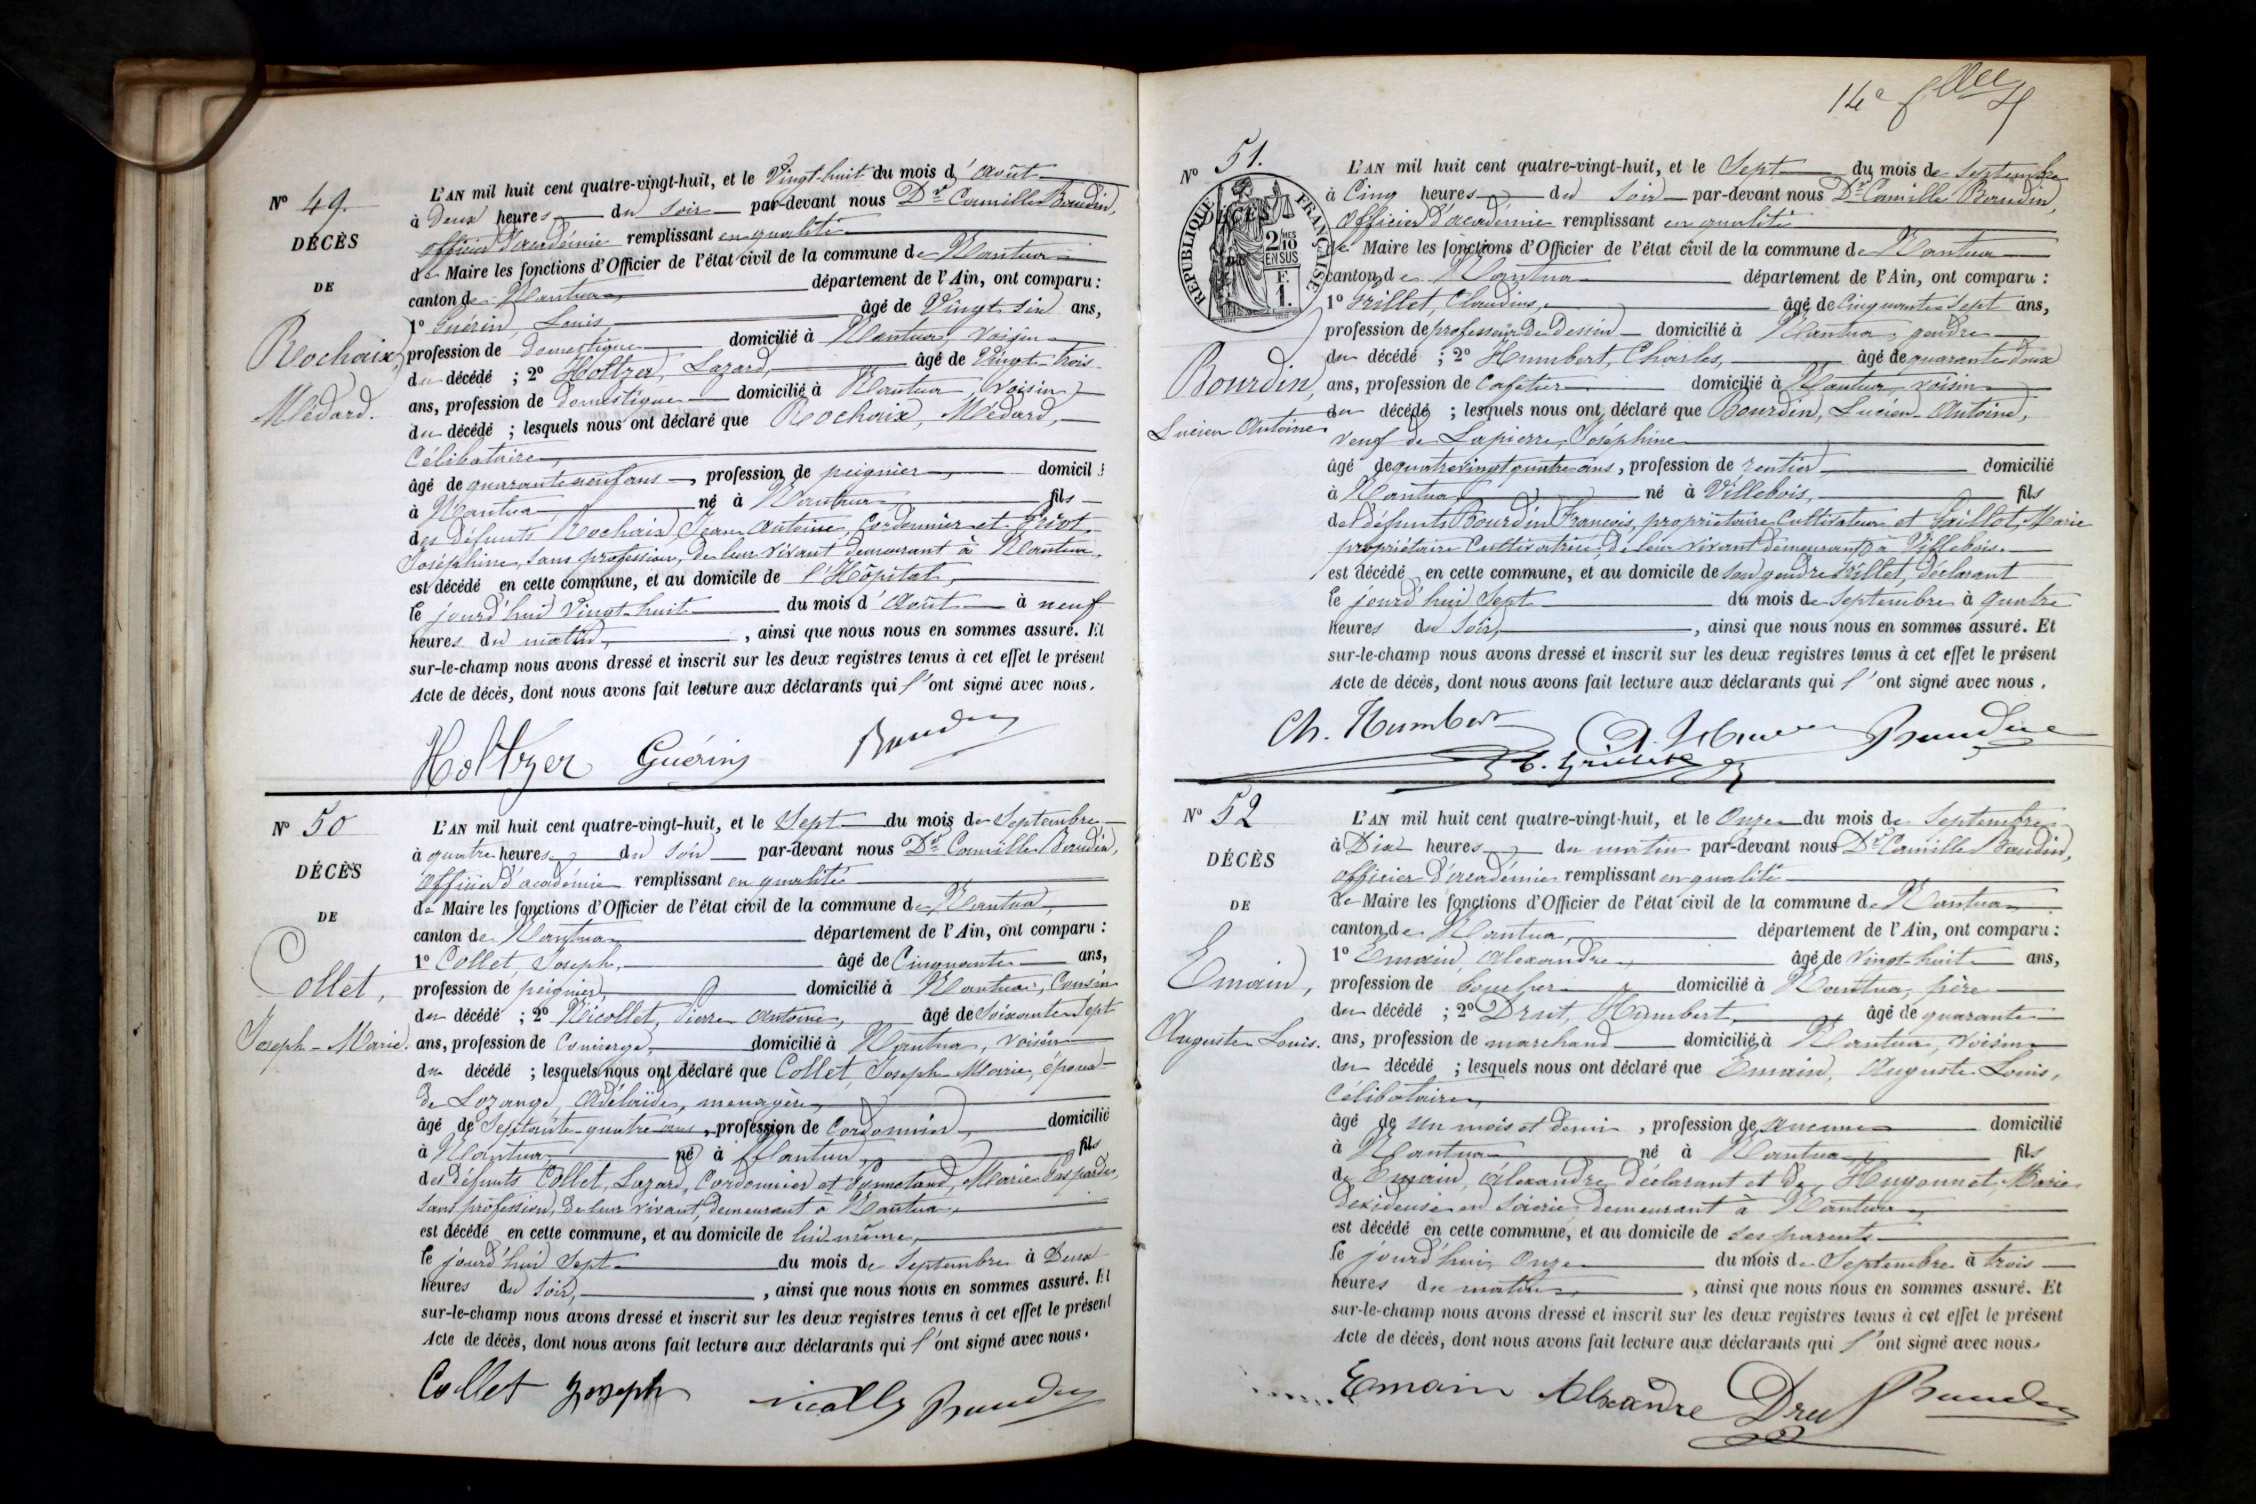 Nº 49.
DÉCÈS
DE
Rochaix,
Médard.
L'AN mil huit cent quatre-vingt-huit, et le Vingt-huit du mois d'Août
à Deux heures du soir par-devant nous Dr Camille Baudin,
officier d'académie remplissant en qualité
de Maire les fonctions d'Officier de l'état civil de la commune de Nantua
canton de Nantua département de l'Ain, ont comparu :
1º Guérin, Louis, âgé de Vingt six ans,
profession de domestique domicilié à Nantua, voisin
du décédé ; 2º Holtzer, Lazard, âgé de Vingt-trois
ans, profession de domestique domicilié à Nantua, voisin
du décédé ; lesquels nous ont déclaré que Rochaix, Médard,
Célibataire,
âgé de quarante neuf ans, profession de peignier, domicilié
à Nantua né à Nantua fils
des défunts Rochaix Jean Antoine, Cordonnier et
Joséphine, sans profession, de leur vivant demeurant à Nantua,
est décédé en cette commune, et au domicile de l'Hôpital,
le jourd'hui vingt-huit du mois d'Août à neuf
heures du matin, , ainsi que nous nous en sommes assuré. Et
sur-le-champ nous avons dressé et inscrit sur les deux registres tenus à cet effet le présent
Acte de décès, dont nous avons fait lecture aux déclarants qui l'ont signé avec nous.
Holtzer Guérin Baudin
Nº 50
DÉCÈS
DE
Collet,
Joseph-Marie.
L'AN mil huit cent quatre-vingt-huit, et le Sept du mois de Septembre
à quatre heures du soir par-devant nous Dr Camille Baudin,
officier d'académie remplissant en qualité
de Maire les fonctions d'Officier de l'état civil de la commune de Nantua,
canton de Nantua département de l'Ain, ont comparu :
1º Collet, Joseph, âgé de Cinquante ans,
profession de peignier, domicilié à Nantua, Cousin
du décédé ; 2º Nicollet, Pierre Antoine, âgé de Soixante Sept
ans, profession de Concierge, domicilié à Nantua, voisin
du décédé ; lesquels nous ont déclaré que Collet, Joseph Marie, époux
de Lozange, Adélaïde, menagère,
âgé de Septante-quatre ans, profession de Cordonnier, domicilié
à Nantua, né à Nantua, fils
des défunts Collet, Lazard, Cordonnier et Marie Gasparde,
sans profession, de leur vivant, demeurant à Nantua,
est décédé en cette commune, et au domicile de lui même,
le jourd'hui Sept du mois de Septembre à Deux
heures du soir, , ainsi que nous nous en sommes assuré. Et
sur-le-champ nous avons dressé et inscrit sur les deux registres tenus à cet effet le présent
Acte de décès, dont nous avons fait lecture aux déclarants qui l'ont signé avec nous.
Collet Joseph Nicollet Baudin
14e flle
Nº 51.
DÉCÈS
RÉPUBLIQUE FRANÇAISE
2 10MES EN SUS
F. 1.
Bourdin,
Lucien Antoine.
L'AN mil huit cent quatre-vingt-huit, et le Sept du mois de Septembre
à Cinq heures du soir par-devant nous Dr Camille Baudin,
Officier d'académie remplissant en qualité
de Maire les fonctions d'Officier de l'état civil de la commune de Nantua
canton de Nantua département de l'Ain, ont comparu :
1º Grillet, Claudius, âgé de Cinquante Sept ans,
profession de professeur de Dessin domicilié à Nantua, gendre
du décédé ; 2º Humbert, Charles, âgé de quarante deux
ans, profession de Cafetier domicilié à Nantua, voisin
du décédé ; lesquels nous ont déclaré que Bourdin, Lucien Antoine,
veuf de Lapierre, Joséphine
âgé de quatre vingt quatre ans, profession de rentier, domicilié
à Nantua né à Villebois, fils
des défunts Bourdin François, propriétaire Cultivateur et Gaillot, Marie
propriétaire Cultivatrice, de leur vivant demeurant à Villebois.
est décédé en cette commune, et au domicile de son gendre Grillet, déclarant
le jourd'hui Sept du mois de Septembre à quatre
heures du soir, , ainsi que nous nous en sommes assuré. Et
sur-le-champ nous avons dressé et inscrit sur les deux registres tenus à cet effet le présent
Acte de décès, dont nous avons fait lecture aux déclarants qui l'ont signé avec nous.
Ch. Humbert Baudin
Nº 52
DÉCÈS
DE
Emain,
Auguste Louis.
L'AN mil huit cent quatre-vingt-huit, et le Onze du mois de Septembre
à Dix heures du matin par-devant nous Dr Camille Baudin,
officier d'académie remplissant en qualité
de Maire les fonctions d'Officier de l'état civil de la commune de Nantua
canton de Nantua, département de l'Ain, ont comparu :
1º Emain, Alexandre, âgé de Vingt-huit ans,
profession de domicilié à Nantua, père
du décédé ; 2º Drut, Humbert, âgé de quarante
ans, profession de marchand domicilié à Nantua, voisin
du décédé ; lesquels nous ont déclaré que Emain, Auguste Louis,
Célibataire,
âgé de un mois et demi, profession de aucune domicilié
à Nantua né à Nantua fils
de Emain, Alexandre, déclarant et de Hugonnet, Marie
dévideuse en soierie, demeurant à Nantua,
est décédé en cette commune, et au domicile de ses parents
le jourd'hui Onze du mois de Septembre à trois
heures du matin, , ainsi que nous nous en sommes assuré. Et
sur-le-champ nous avons dressé et inscrit sur les deux registres tenus à cet effet le présent
Acte de décès, dont nous avons fait lecture aux déclarants qui l'ont signé avec nous.
Emain Alexandre Drut Baudin